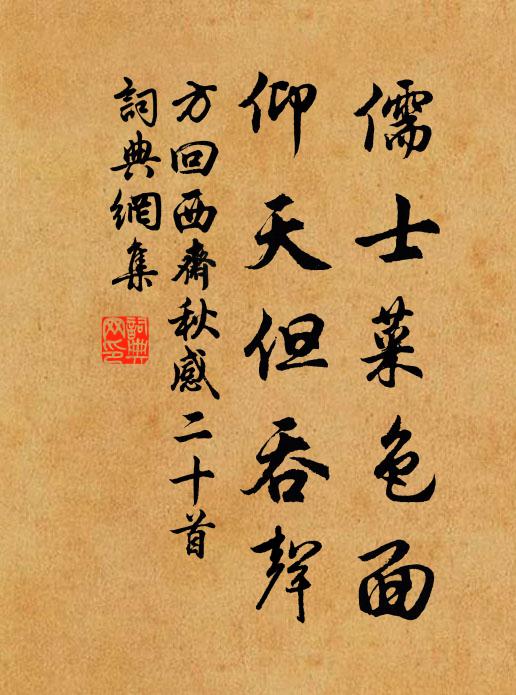 儒士菜色面
仰天但吞聲
方回西齋秋感二十首
詞典網集
詞典網印